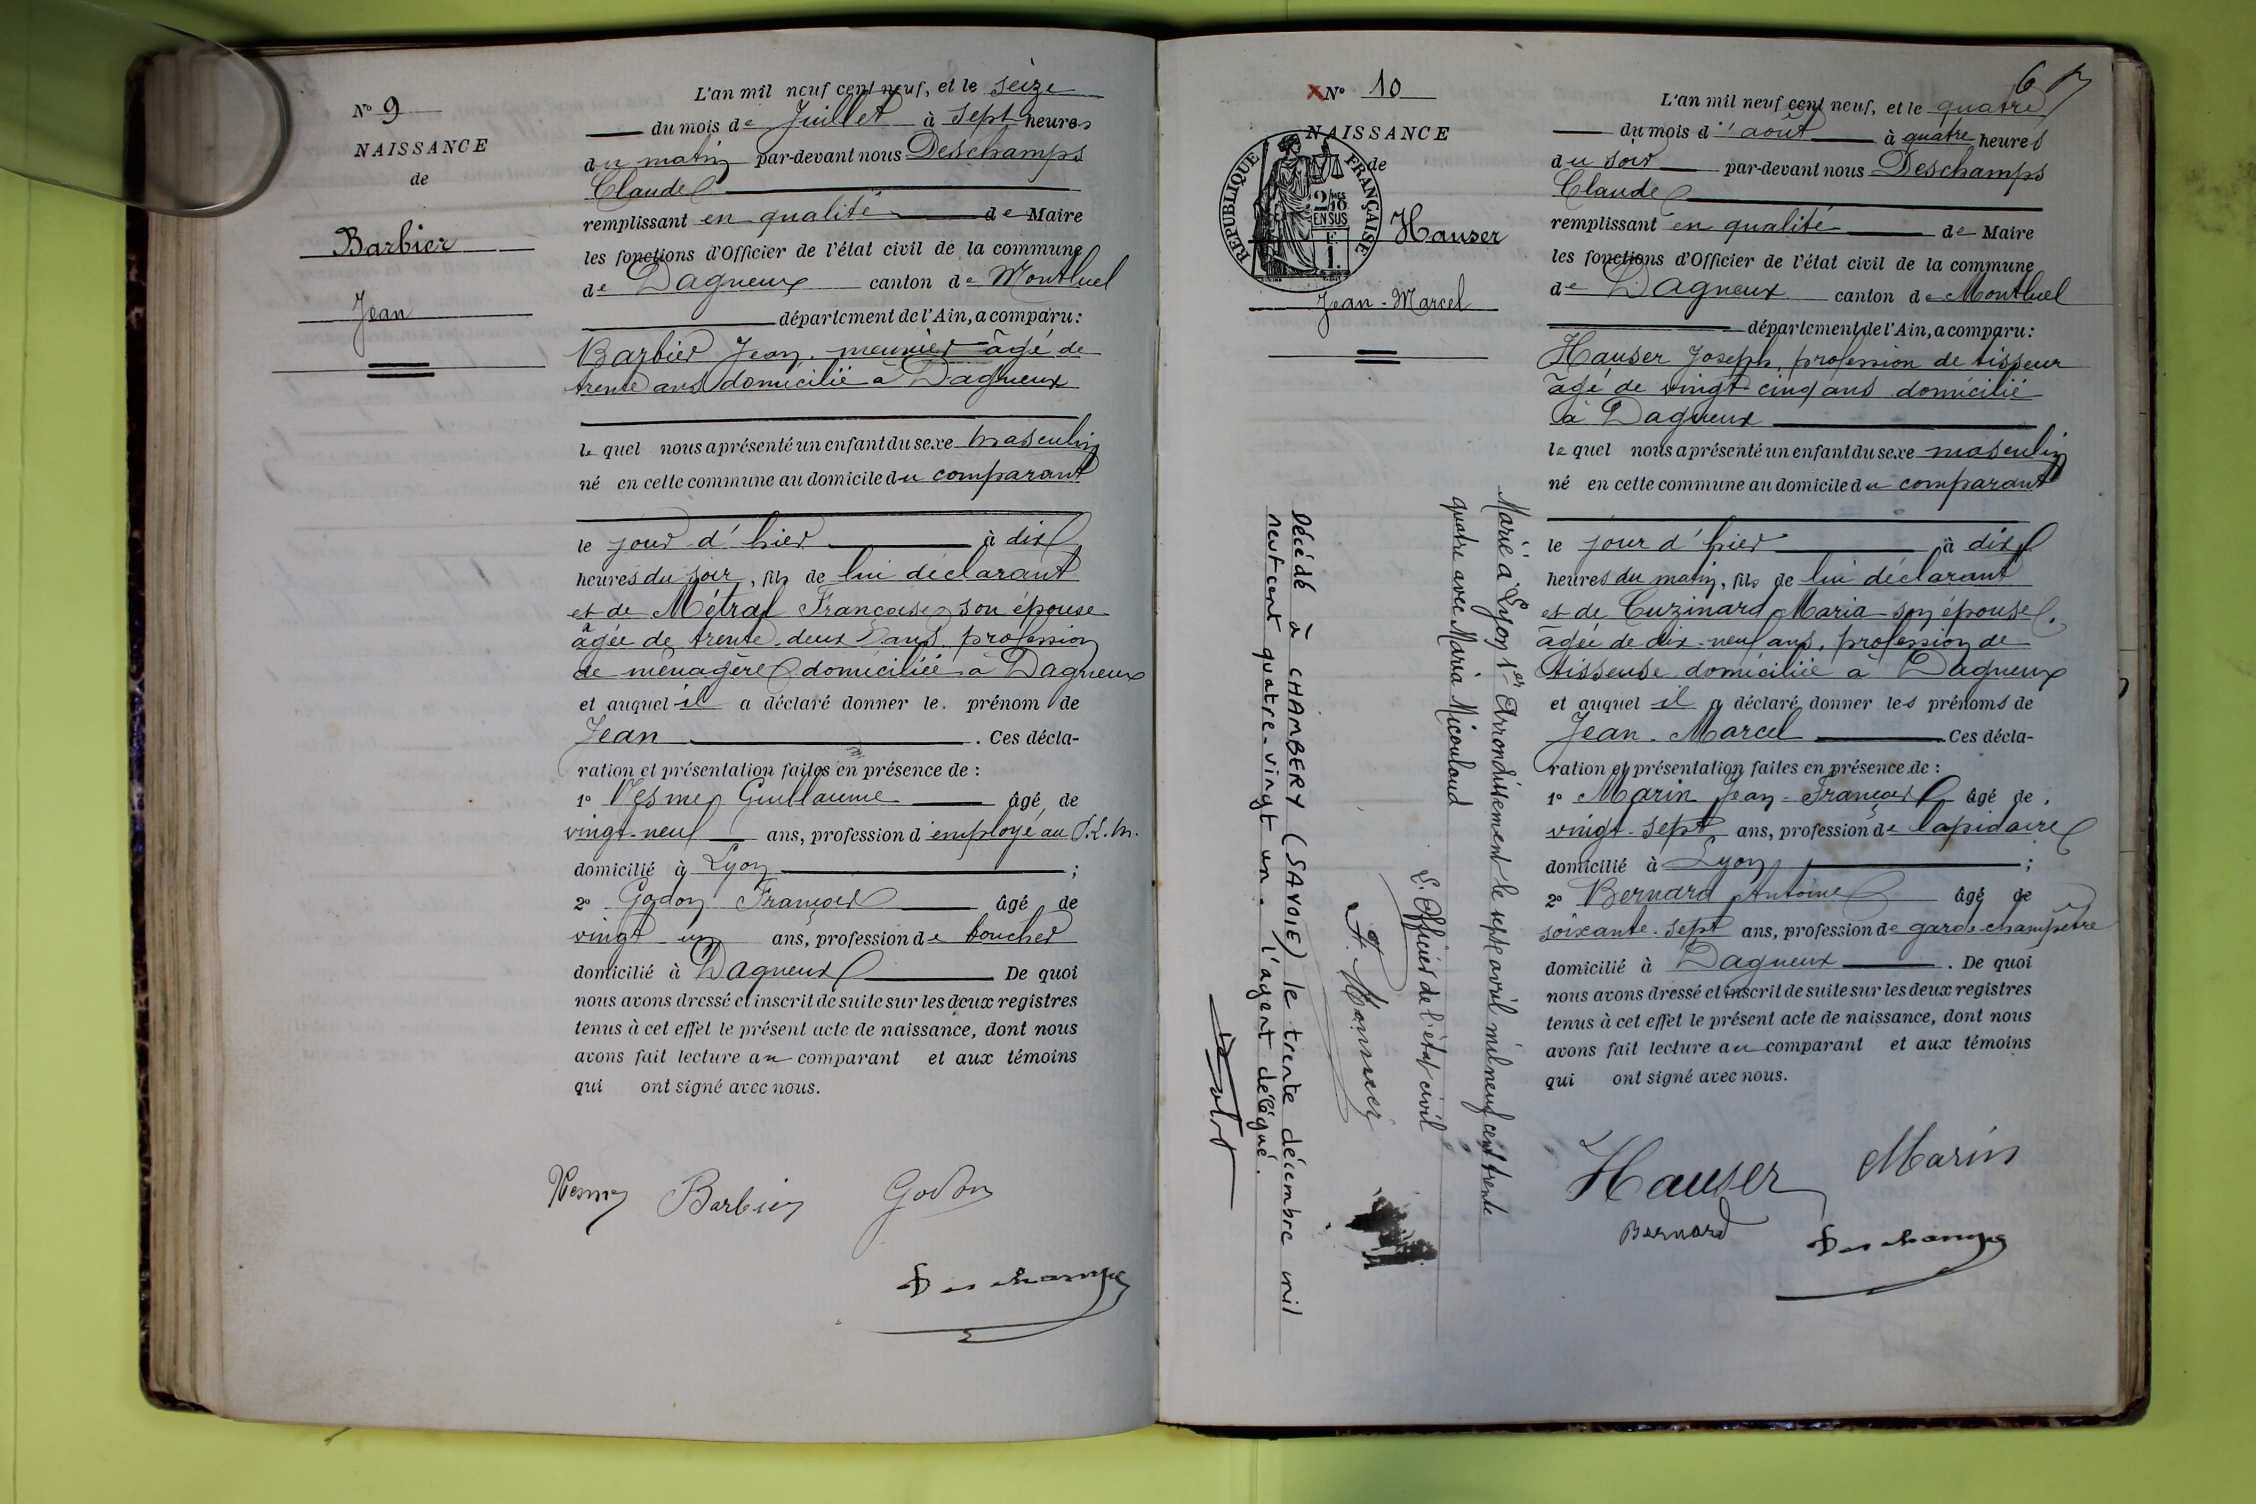 N° 9
NAISSANCE
de
Barbier
Jean
L'an mil neuf cent neuf, et le seize
du mois de Juillet à sept heures
du matin par-devant nous Deschamps
Claude
remplissant en qualité de Maire
les fonctions d'Officier de l'état civil de la commune
de Dagneux canton de Montluel
département de l'Ain, a comparu :
Barbier Jean, meunier âgé de
trente ans domicilié à Dagneux
le quel nous a présenté un enfant du sexe masculin
né en cette commune au domicile du comparant
le jour d'hier à dix
heures du soir, fils de lui déclarant
et de Métral Françoise son épouse
âgée de trente deux ans, profession
de ménagère domiciliée à Dagneux
et auquel il a déclaré donner le prénom de
Jean . Ces décla-
ration et présentation faites en présence de :
1° Vesme Guillaume âgé de
vingt-neuf ans, profession d'employé au P.L.M.
domicilié à Lyon ;
2° Godon François âgé de
vingt un ans, profession de boucher
domicilié à Dagneux De quoi
nous avons dressé et inscrit de suite sur les deux registres
tenus à cet effet le présent acte de naissance, dont nous
avons fait lecture au comparant et aux témoins
qui ont signé avec nous.
Vesme Barbier Godon
Deschamps
6
X N° 10
NAISSANCE
de
RÉPUBLIQUE FRANÇAISE
2/10es
EN SUS
F.
1.
Hauser
Jean-Marcel
L'an mil neuf cent neuf, et le quatre
du mois d'août à quatre heures
du soir par-devant nous Deschamps
Claude
remplissant en qualité de Maire
les fonctions d'Officier de l'état civil de la commune
de Dagneux canton de Montluel
département de l'Ain, a comparu :
Hauser Joseph, profession de tisseur
âgé de vingt cinq ans domicilié
à Dagneux
le quel nous a présenté un enfant du sexe masculin
né en cette commune au domicile du comparant
le jour d'hier à dix
heures du matin, fils de lui déclarant
et de Cuzinard Maria son épouse,
âgée de dix-neuf ans, profession de
tisseuse domiciliée à Dagneux
et auquel il a déclaré donner les prénoms de
Jean-Marcel . Ces décla-
ration et présentation faites en présence de :
1° Marin Jean-François âgé de
vingt-sept ans, profession de lapidaire
domicilié à Lyon ;
2° Bernard Antoine âgé de
soixante-sept ans, profession de garde-champêtre
domicilié à Dagneux . De quoi
nous avons dressé et inscrit de suite sur les deux registres
tenus à cet effet le présent acte de naissance, dont nous
avons fait lecture au comparant et aux témoins
qui ont signé avec nous.
Hauser Marin
Bernard Deschamps
Marié à Lyon 1er Arrondissement le sept avril mil neuf cent trente
quatre avec Maria Micouloud
L'Officier de l'état civil
Décédé à CHAMBERY (SAVOIE) le trente décembre mil
neuf cent quatre-vingt un. l'agent délégué.